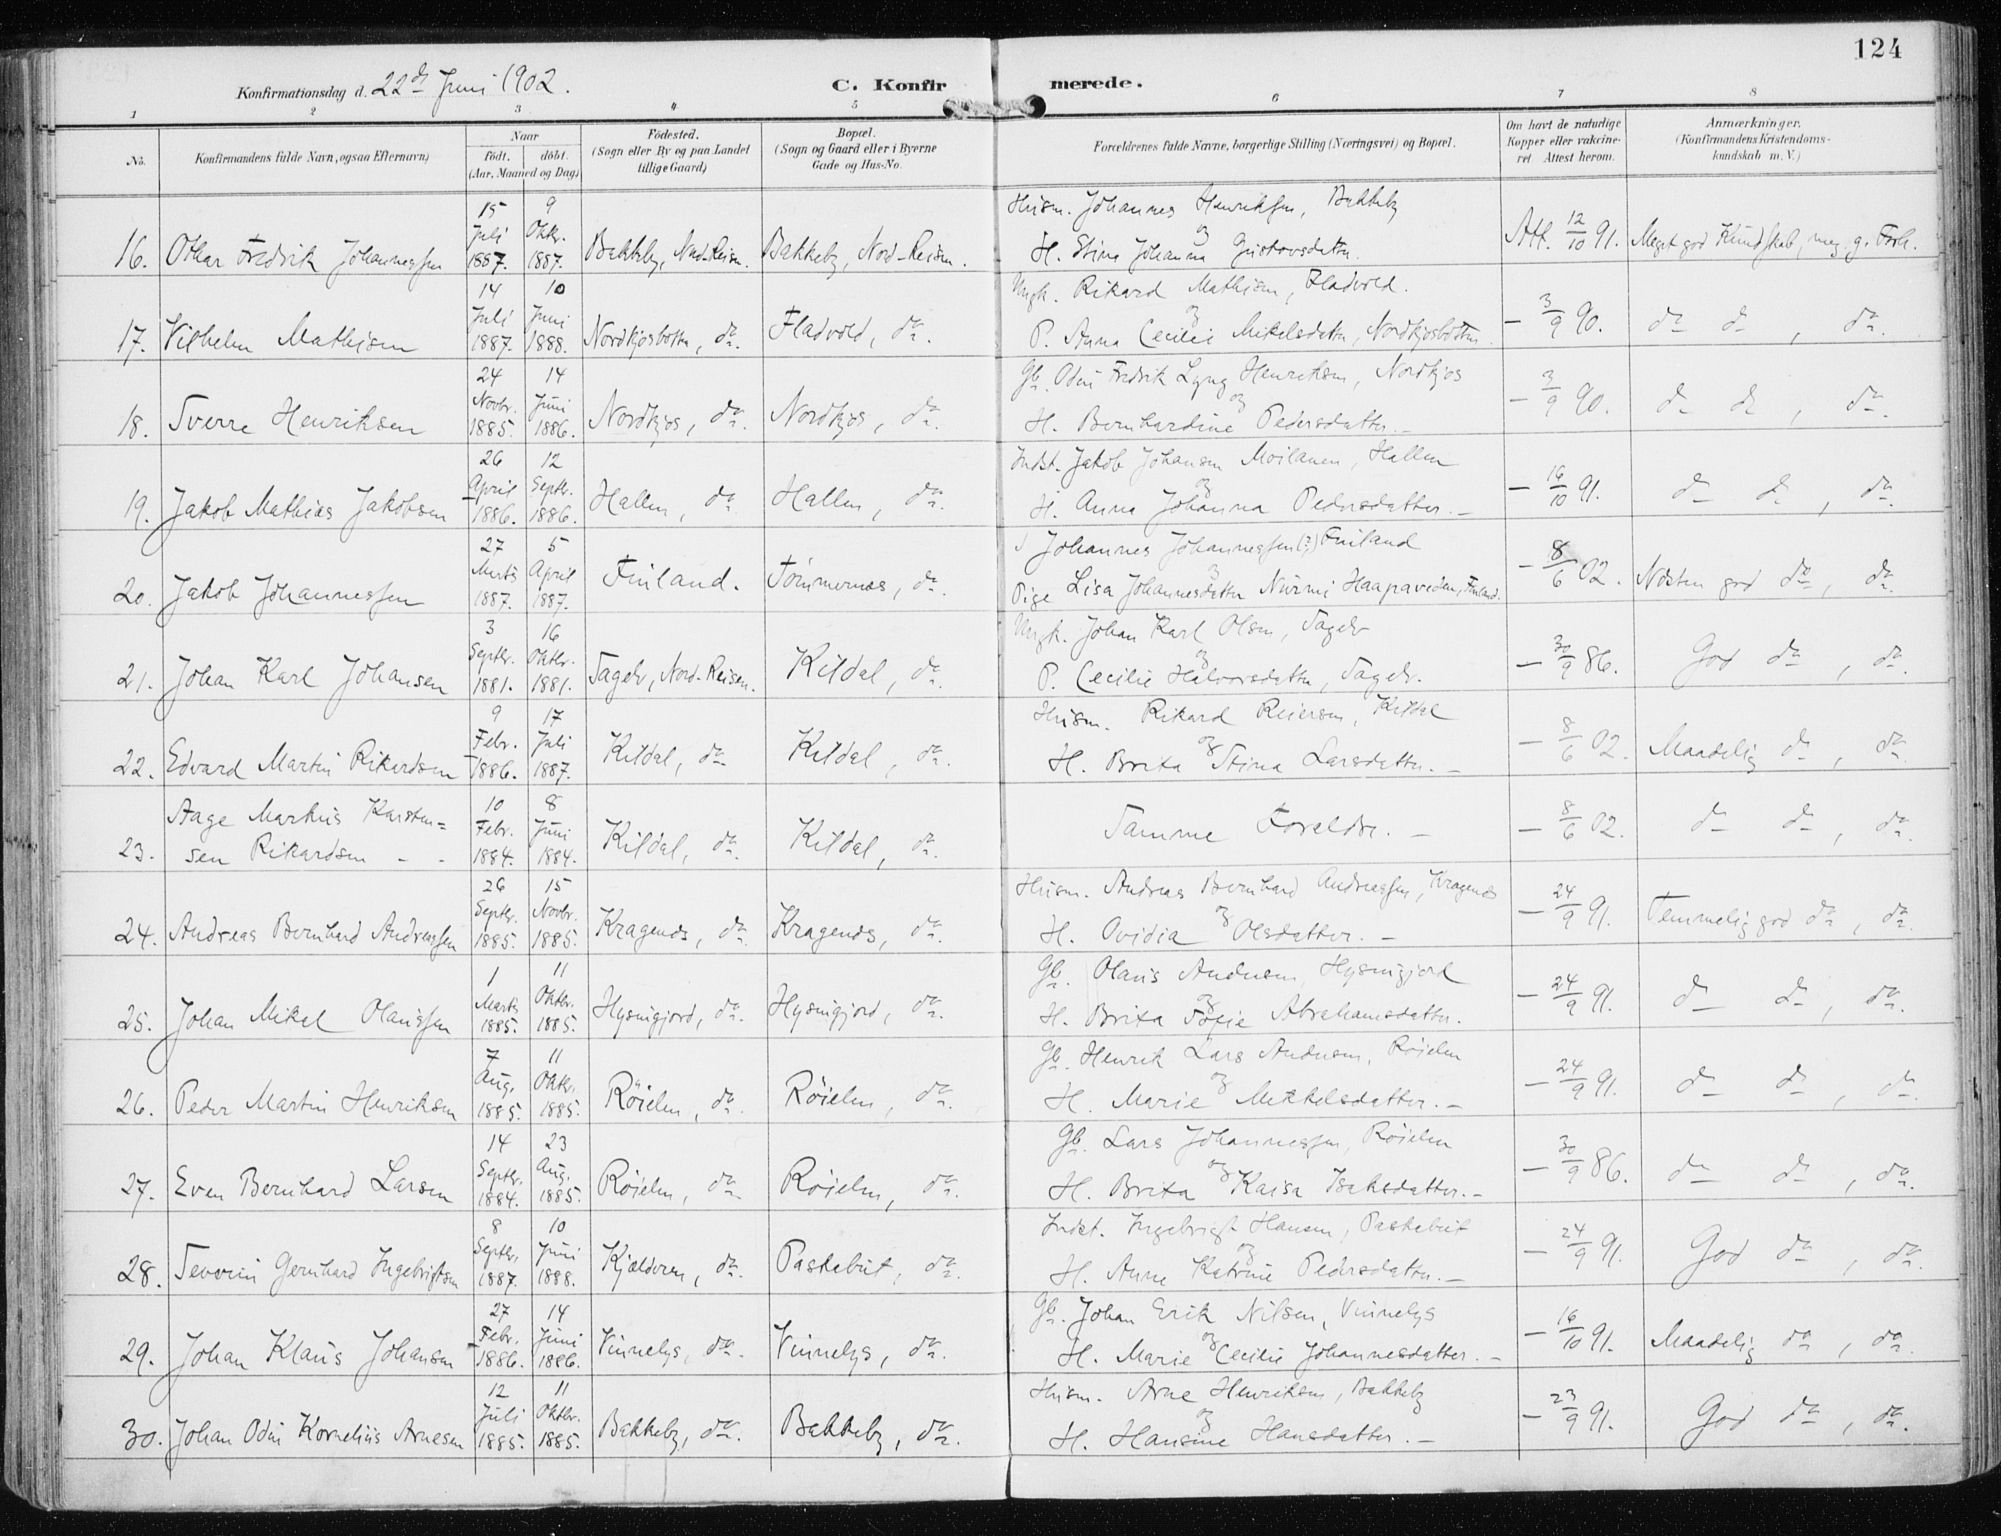 124
Konfirmationsdag d. 22de Juni 1902.
C. Konfirmerede.
1 2 3 4 5 6 7 8
No.
Konfirmandens fulde Navn, ogsaa Efternavn)
Naar
födt. döbt.
(Aar, Maaned og Dag)
Födested.
(Sogn eller By og paa Landet
tillige Gaard)
Bopæl.
(Sogn og Gaard eller i Byerne
Gade og Hus-No.
Forældrenes fulde Navne, borgerlige Stilling (Næringsvei) og Bopæl.
Om havt de naturlige
Kopper eller vakcine-
ret Attest herom.
Anmærkninger.
(Konfirmandens Kristendoms-
kundskab m. V.)
16. Othar Fredrik Johannessen 15 Juli 1887. 9 Oktr. 1887. Bakkeby, Nord-Reisen. Bakkeby, Nord-Reisen.
Husm. Johannes Henriksen, Bakkeby
og
H. Stina Johanna Gustavsdatter. Att. 12/10 91. Meget god Kundskab, meg. g. Forh.
17. Vilhelm Mathisen 14 Juli 1887. 10 Juni 1888. Nordkjosbotten, do. Fladvold, do.
Ungk. Rikard Mathisen, Fladvold.
og
P. Anna Cecilie Mikelsdatter, Nordkjosbotten. – 3/9 90. do do, do.
18. Sverre Henriksen 24 Novbr. 1885. 14 Juni 1886. Nordkjos, do. Nordkjos, do.
Gb. Odin Fredrik Lyng Henriksen, Nordkjos
og
H. Bernhardine Pedersdatter. – – 3/9 90. do do, do.
19. Jakob Mathias Jakobsen 26 April 1886. 12 Septr. 1886. Hallen, do. Hallen, do.
Indst. Jakob Johansen Moilanen, Hallen
og
H. Anna Johanna Pedersdatter. – – 16/10 91. do do, do.
20. Jakob Johannessen 27 Marts 1887. 5 April 1887. Finland. Tömmernes, do.
Johannes Johannessen (?) Finland
og
Pige Lisa Johannesdatter Nurmi Haapaveden, Finland. – 8/6 02. Næsten god do, do.
21. Johan Karl Johansen 3 Septbr. 1881. 16 Oktbr. 1881. Sagelv, Nord-Reisen. Kildal, do.
Ungk. Johan Karl Olsen, Sagelv
og
P. Cecilie Halvorsdatter, Sagelv. – 30/9 86. God do, do.
22. Edvard Martin Rikardsen 9 Febr. 1886. 17 Juli 1887. Kildal, do. Kildal, do.
Husm. Rikard Reiersen, Kildal
og
H. Brita Stina Larsdatter. – – 8/6 02. Maadelig do, do.
23. Aage Markus Karsten=
sen Rikardsen - - 10 Febr. 1884. 8 Juni 1884. Kildal, do. Kildal, do.
Samme Foreldre. – – 8/6 02. do do, do.
24. Andreas Bernhard Andreassen 26 Septbr. 1885. 15 Novbr. 1885. Kragenes, do. Kragenes, do.
Husm. Andreas Bernhard Andreassen, Kragenes
og
H. Ovidia Olsdatter. – – 24/9 91. Temmelig god do, do.
25. Johan Mikal Olaussen 1 Marts 1885. 11 Oktbr. 1885. Hysingjord, do. Hysingjord, do.
Gb. Olaus Andersen, Hysingjord
og
H. Brita Sofie Abrahamsdatter. – 24/9 91. do do, do.
26. Peder Martin Henriksen 7 Aug. 1885. 11 Oktr. 1885. Röielen, do. Röielen, do.
Gb. Henrik Lars Andersen, Röielen
og
H. Marie Mikkelsdatter. – – 24/9 91. do do, do.
27. Even Bernhard Larsen 14 Septbr. 1884. 23 Aug. 1885. Röielen, do. Röielen, do.
Gb. Lars Johannessen, Röielen
og
H. Brita Kaisa Isaksdatter. – – 30/9 86. do do, do.
28. Severin Gernhard Ingebrigtsen 8 Septbr. 1887. 10 Juni 1888. Kjælderen, do. Paskabut, do.
Indst. Ingebrigt Hansen, Paskabut
og
H. Anne Katrine Pedersdatter. – – 24/9 91. God do, do.
29. Johan Klaus Johansen 27 Febr. 1886. 14 Juni 1886. Vinnelys, do. Vinnelys, do.
Gb. Johan Erik Nilsen, Vinnelys
og
H. Marie Cecilie Johannesdatter. – – 16/10 91. Maadelig do, do.
30. Johan Odin Kornelius Arnesen 12 Juli 1885. 11 Oktbr. 1885. Bakkeby, do. Bakkeby, do.
Husm. Arne Henriksen, Bakkeby
og
H. Hansine Hansdatter. – – 23/9 91. God do, do.